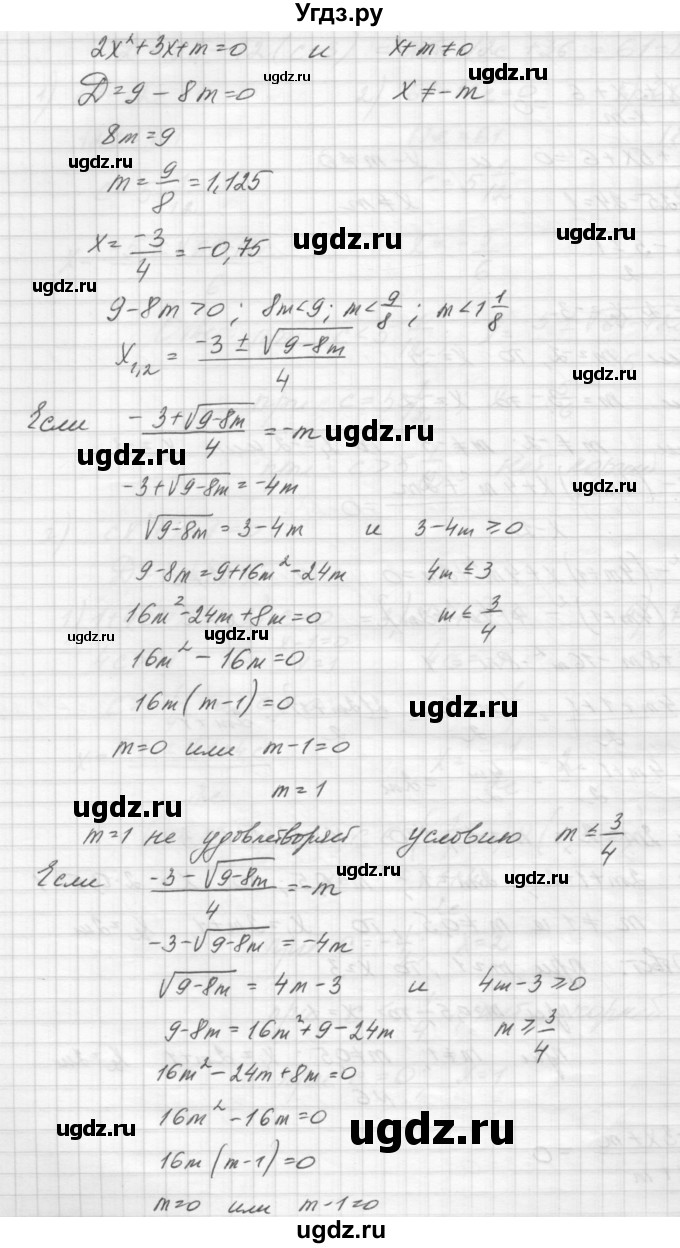 Угдз.ру
2x²+3x+m=0 и x+m≠0
ugdz.ru
Д=9-8m=0 x≠-m
8m=9
ugdz.ru
m=9/8=1,125
ugdz.ru
x=-3/4=-0,75
ugdz.ru
ugdz.ru
9-8m>0; 8m<9; m<9/8; m<1 1/8
x₁,₂=(-3±√(9-8m))/4
ugdz.ru
Если (-3+√(9-8m))/4=-m
ugdz.ru
ugdz.ru
-3+√(9-8m)=-4m
ugdz.ru
√(9-8m)=3-4m и 3-4m≥0
9-8m=9+16m²-24m 4m≤3
16m²-24m+8m=0 m≤3/4
ugdz.ru ugdz.ru
16m²-16m=0
16m(m-1)=0
ugdz.ru
m=0 или m-1=0
m=1
ugdz.ru
m=1 не удовлетворяет условию m≤3/4
Если (-3-√(9-8m))/4=-m
ugdz.ru
ugdz.ru
-3-√(9-8m)=-4m
√(9-8m)=4m-3 и 4m-3≥0
9-8m=16m²+9-24m m≥3/4
16m²-24m+8m=0
16m²-16m=0
ugdz.ru ugdz.ru
16m(m-1)=0
m=0 или m-1=0
ugdz.ru